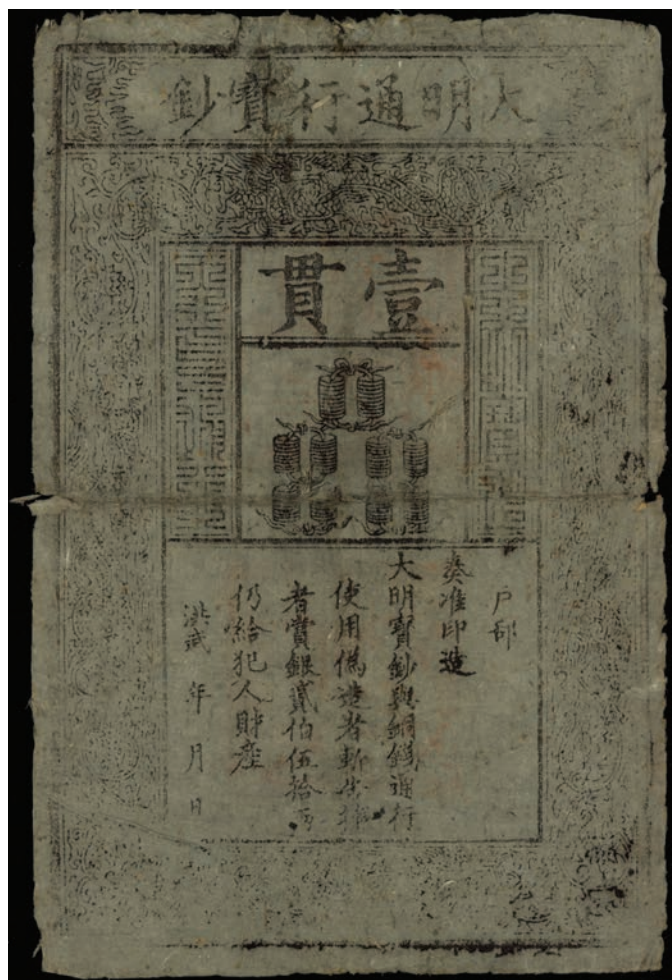 大明通行寶鈔
壹貫
户部
奏准印造
大明寶鈔與銅錢通行
使用僞造者斬告捕
者賞銀貳伯伍拾兩
仍給犯人財產
洪武 年 月 日